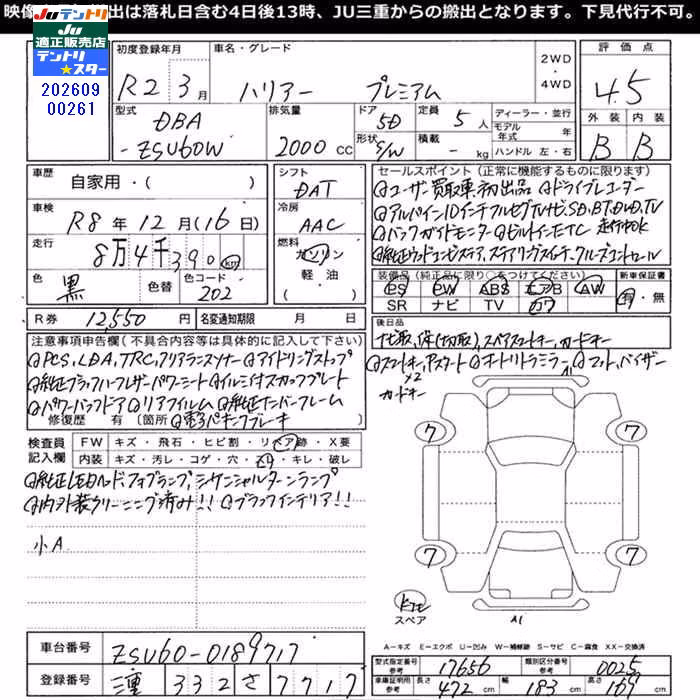 映像 出は落札日含む4日後13時、JU三重からの搬出となります。下見代行不可。
JUテントリ
JU適正販売店
テントリ★スター
202609
00261
初度登録年月 車名・グレード 2WD・4WD 評価点
R2 3月 ハリアー プレミアム 4.5
型式 排気量 ドア 定員 ディーラー・並行 外装 内装
DBA 5D 5人 モデル年式 年 B B
-ZSU60W 2000CC 形状 S/W 積載 - kg ハンドル 左・右
車歴 自家用・( ) シフト DAT
車検 R8年12月(16日) 冷房 AAC
走行 8万4千390km 燃料 ガソリン 軽油 ( )
色 黒 色替 色コード 202
R券 12,550円 名変通知期限 月 日
セールスポイント(正常に機能するものに限ります)
ユーザー買取車初出品 ドライブレコーダー
アルパイン10インチフルセグTVナビ,SD,BT,DVD,TV
バックガイドモニター ビルトインETC 走行中OK
純正ウッドコンビステア,ステアリングスイッチ,クルーズコントロール
装備品(純正品に限り○をつけてください) 新車保証書
PS PW ABS エアB AW 有・無
SR ナビ TV カワ
後日品
ナビ取,保(切取),スペアスマートキー,カードキー
スマートキー,アスマート オートリトラミラー マット,バイザー
×2
カードキー
注意事項申告欄(不具合内容等は具体的に記入して下さい)
PCS,LDA,TRC,クリアランスソナー アイドリングストップ
純正ブラックハーフレザーパワーシート イルミ付スカッフプレート
パワーバックドア リアフィルム 純正ナンバーフレーム
修復歴 有(箇所 電子パーキングブレーキ
検査員記入欄 FW キズ・飛石・ヒビ割・リペア跡・X要
内装 キズ・汚レ・コゲ・穴・スレ・キレ・破レ
純正LEDヘッド,フォグランプ,シーケンシャルターンランプ
内外装クリーニング済み!! ブラックインテリア!!
小A
A1
7 7
7 7
スペア
A1
A-キズ E-エクボ U-凹み W-補修跡 S-サビ C-腐食 XX-交換済
車台番号 ZSU60-0189717
登録番号 三重 332 さ 7717
型式指定番号 参考 17656 類別区分番号 参考 0025
車庫証明用 参考 長さ 472cm 幅 183cm 高さ 169cm